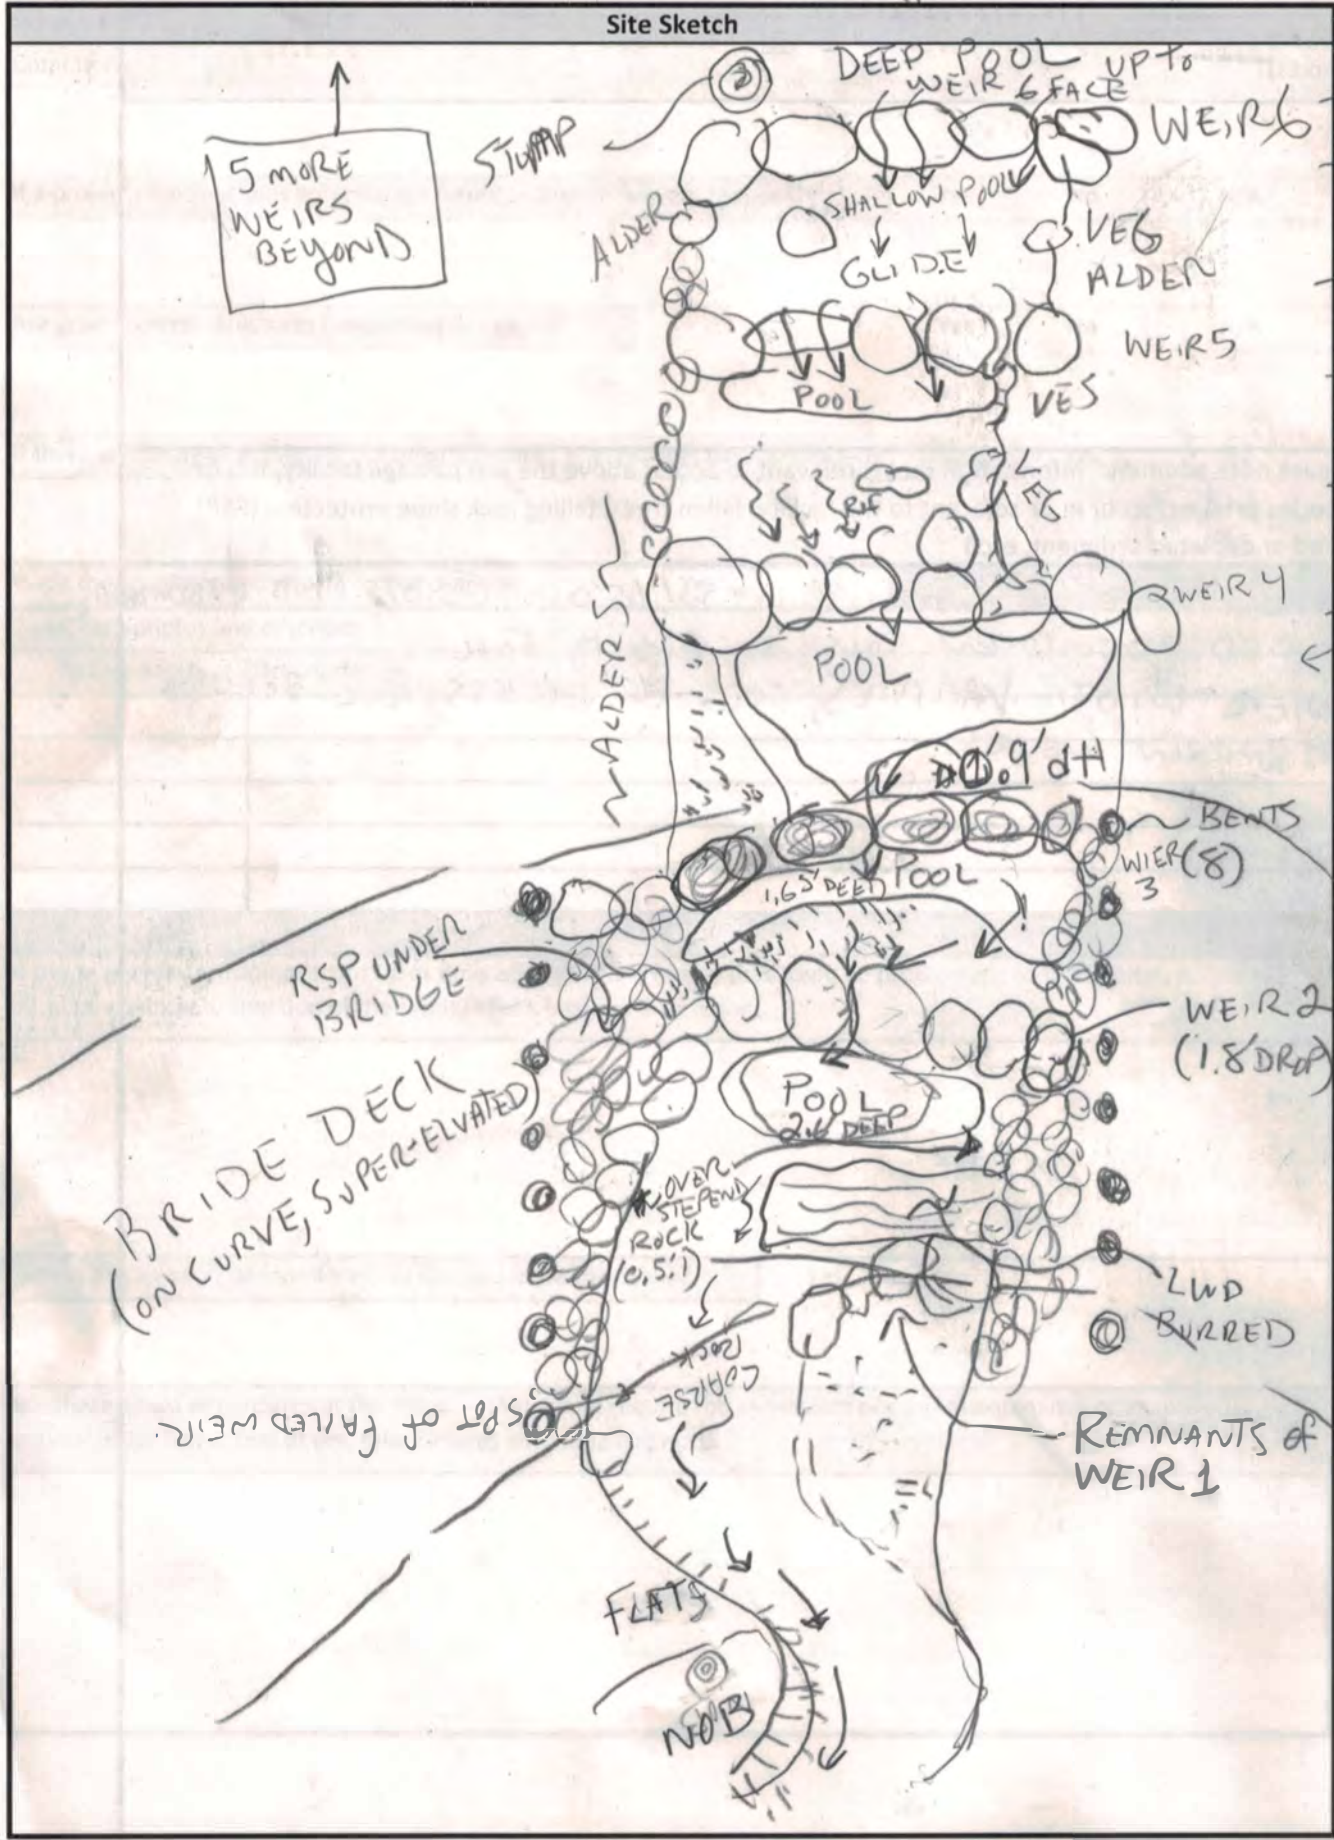 Site Sketch
5 MORE
WEIRS
BEYOND
STUMP
DEEP POOL UP TO
WEIR 6 FACE
WEIR 6
ALDER
SHALLOW POOL
GLIDE
VEG
ALDEN
WEIR 5
POOL
VES
VEG
RIF
WEIR 4
ALDERS
POOL
.9' dH
BENTS
(8)
WIER
3
1.65' DEEP
POOL
RSP UNDER
BRIDGE
WEIR 2
(1.8' DROP)
BRIDE DECK
(ON CURVE, SUPER-ELVATED)
POOL
2.6 DEEP
OVER
STEPEND
ROCK
(0.5:1)
LWD
BURRED
COARSE
ROCK
SPOT of FAILED WEIR.
REMNANTS of
WEIR 1
FLATS
NOB